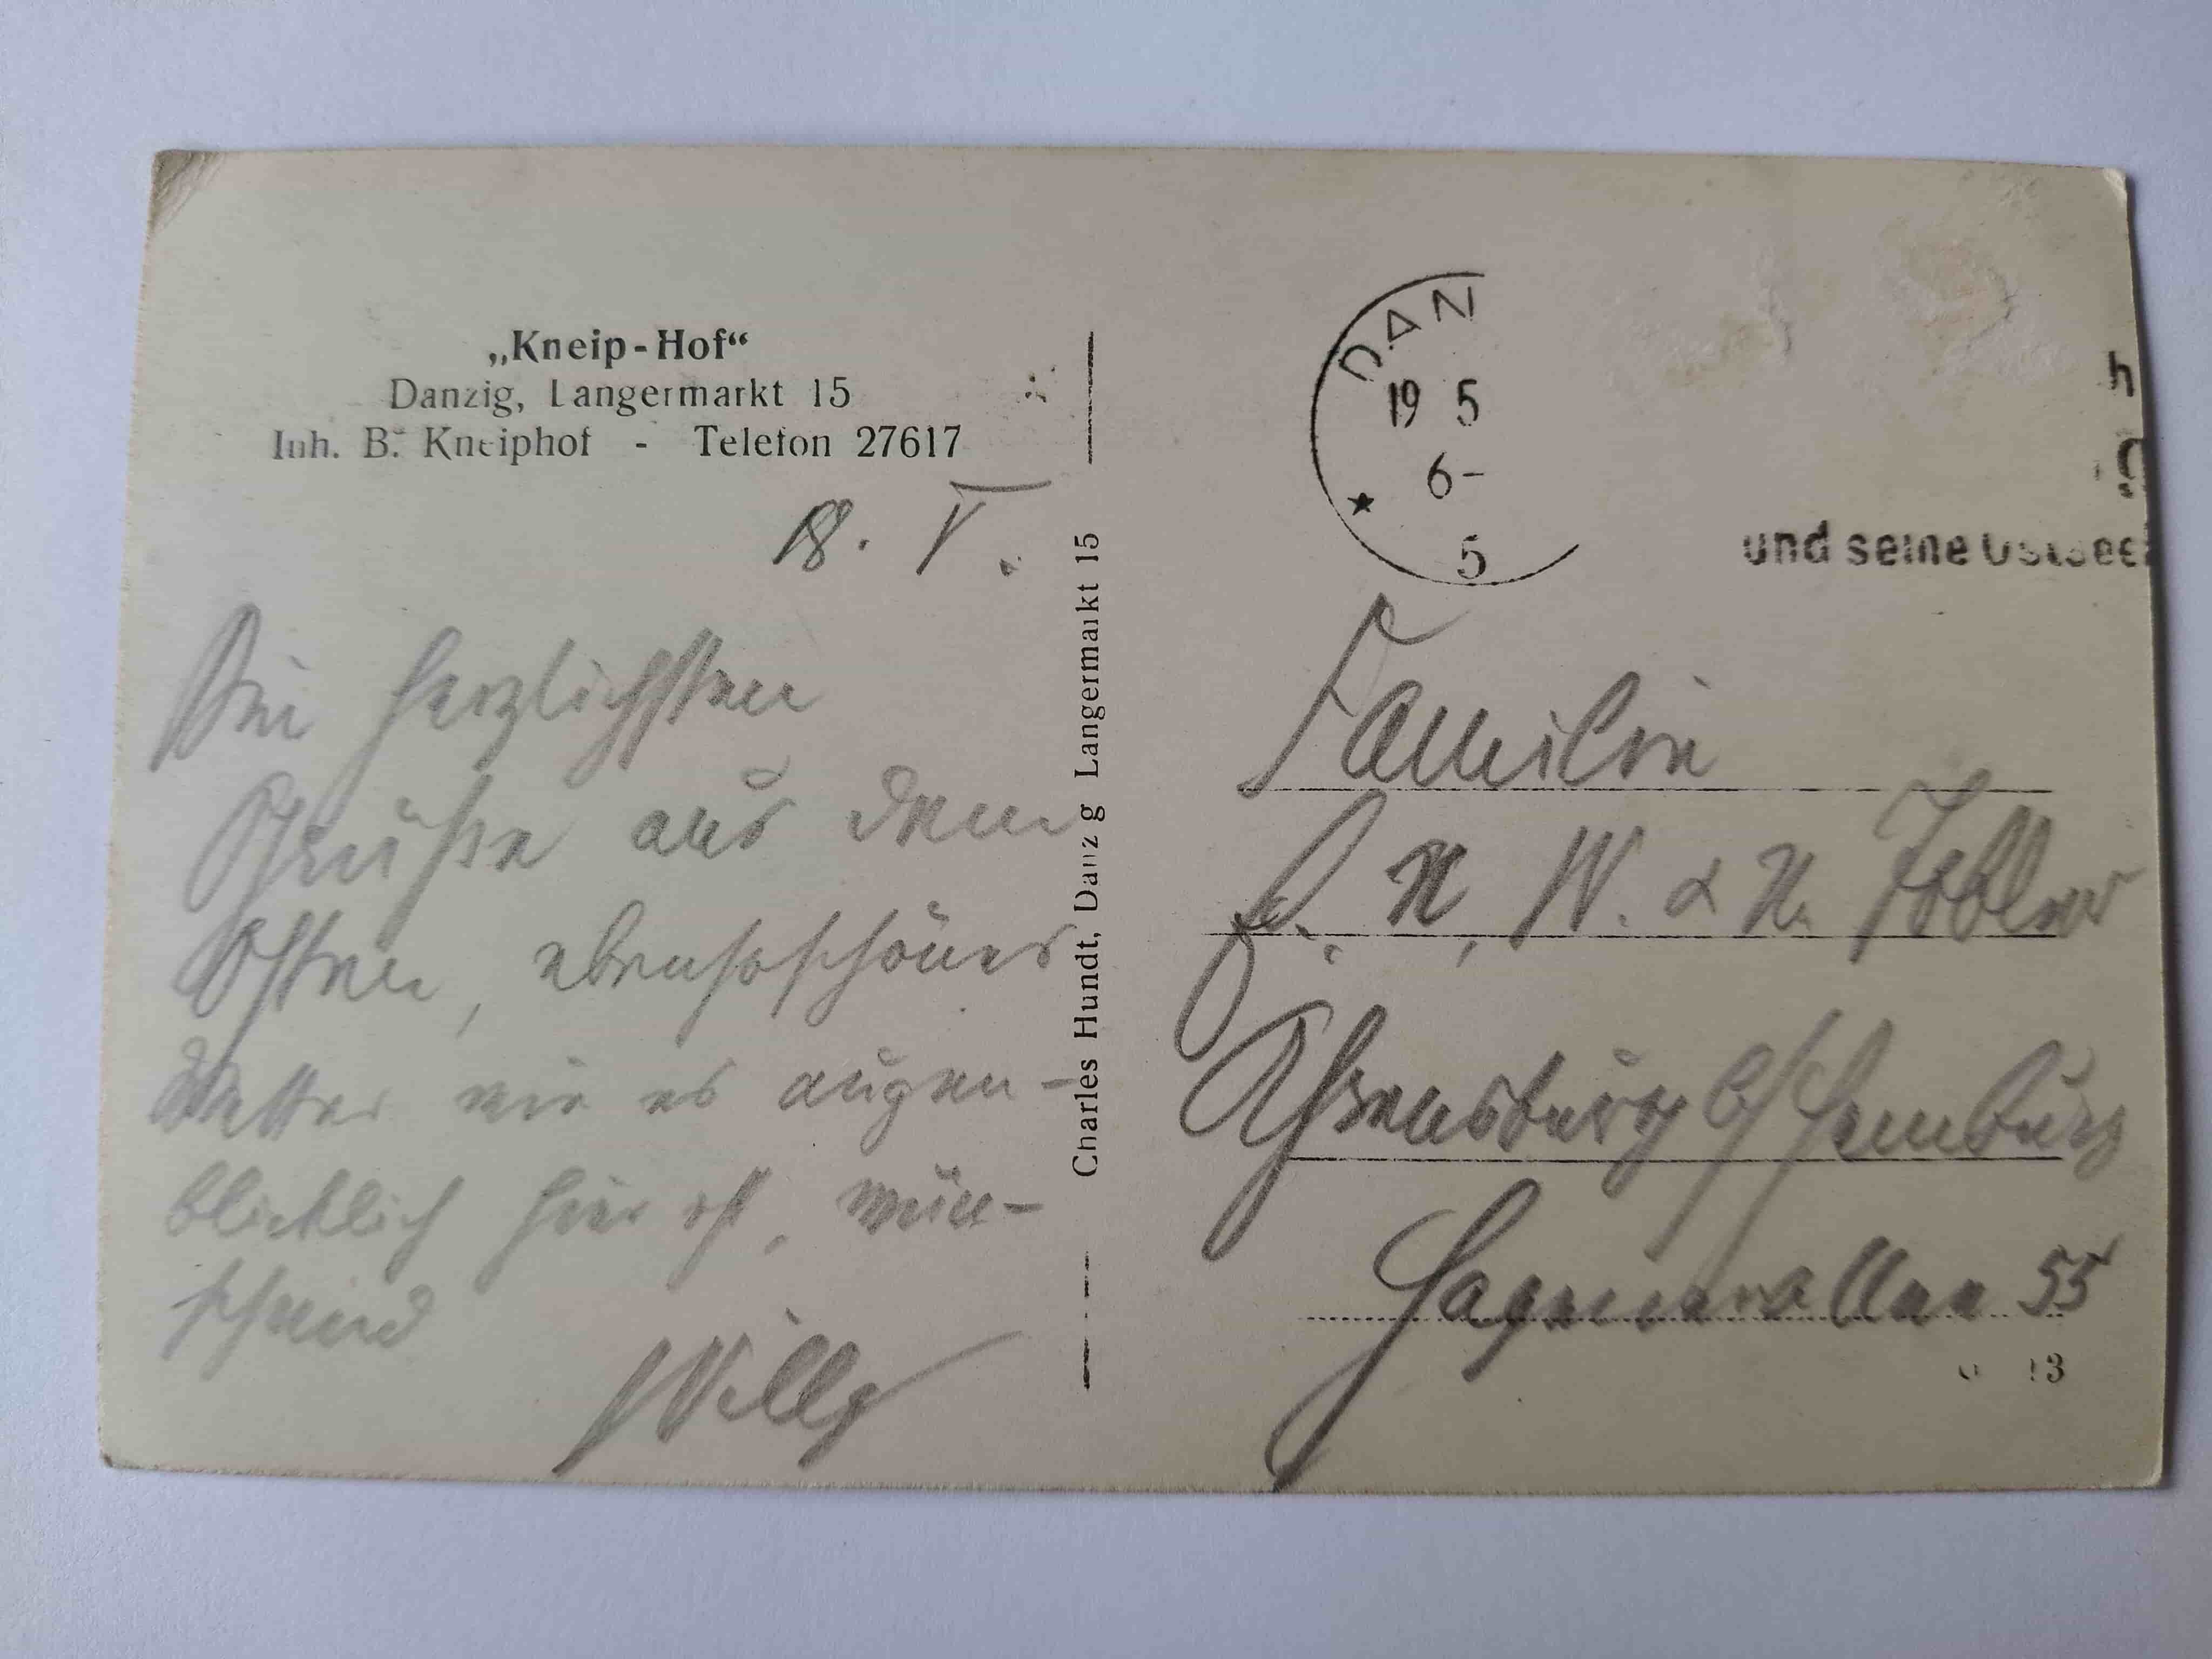 „Kneip-Hof“
Danzig, Langermarkt 15
Inh. B. Kneiphof - Telefon 27617
18. V.
Die herzlichsten
Grüße aus dem
Osten, ebensoschönes
Wetter wie es augen-
blicklich hier ist, wün-
schend
Willy
Charles Hundt, Danzig Langermarkt 15
DAN
19 5
6-
5
und seine Ostsee
Familie
H. W. & H.
Ahrensburg b/Hamburg
Hagenerallee 55